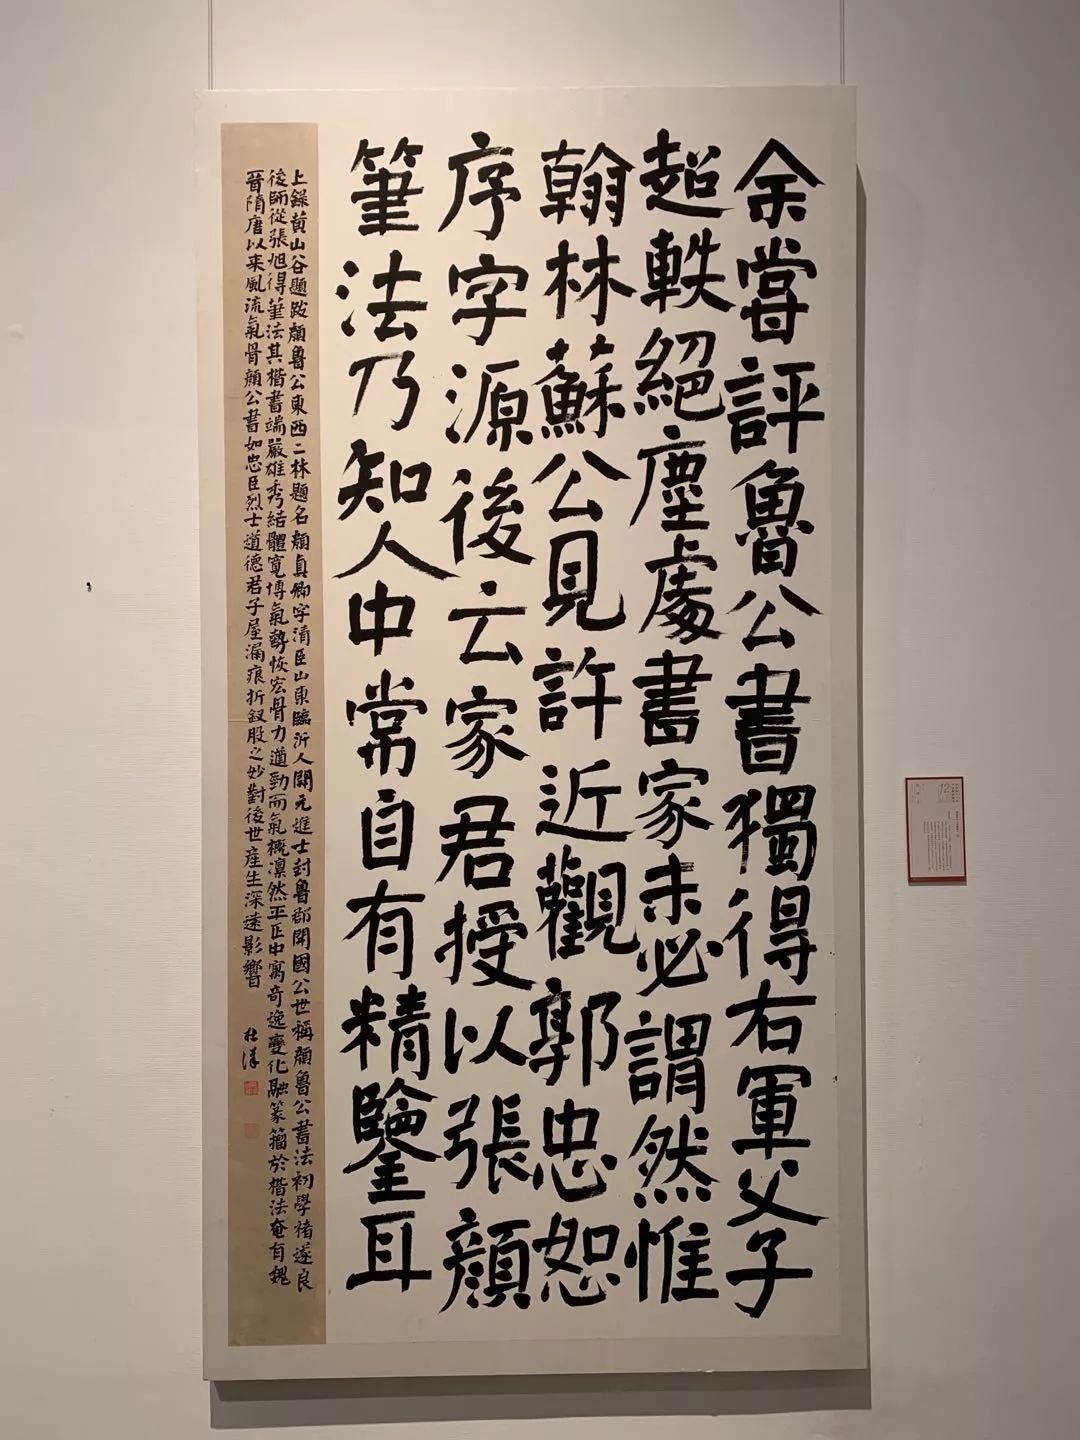 余嘗評魯公書獨得右軍父子
超軼絕塵處書家未必謂然惟
翰林蘇公見許近觀郭忠恕
序字源後云家君授以張顏
筆法乃知人中常自有精鑒耳
上錄黃山谷題跋顏魯公東西二林題名顏真卿字清臣山東臨沂人開元進士封魯郡開國公世稱顏魯公書法初學褚遂良
後師從張旭得筆法其楷書端嚴雄秀結體寬博氣勢恢宏骨力遒勁而氣概凜然平正中寓奇逸變化融篆籀於楷法奄有魏
晉隋唐以來風流氣骨顏公書如忠臣烈士道德君子屋漏痕折釵股之妙對後世產生深遠影響
12